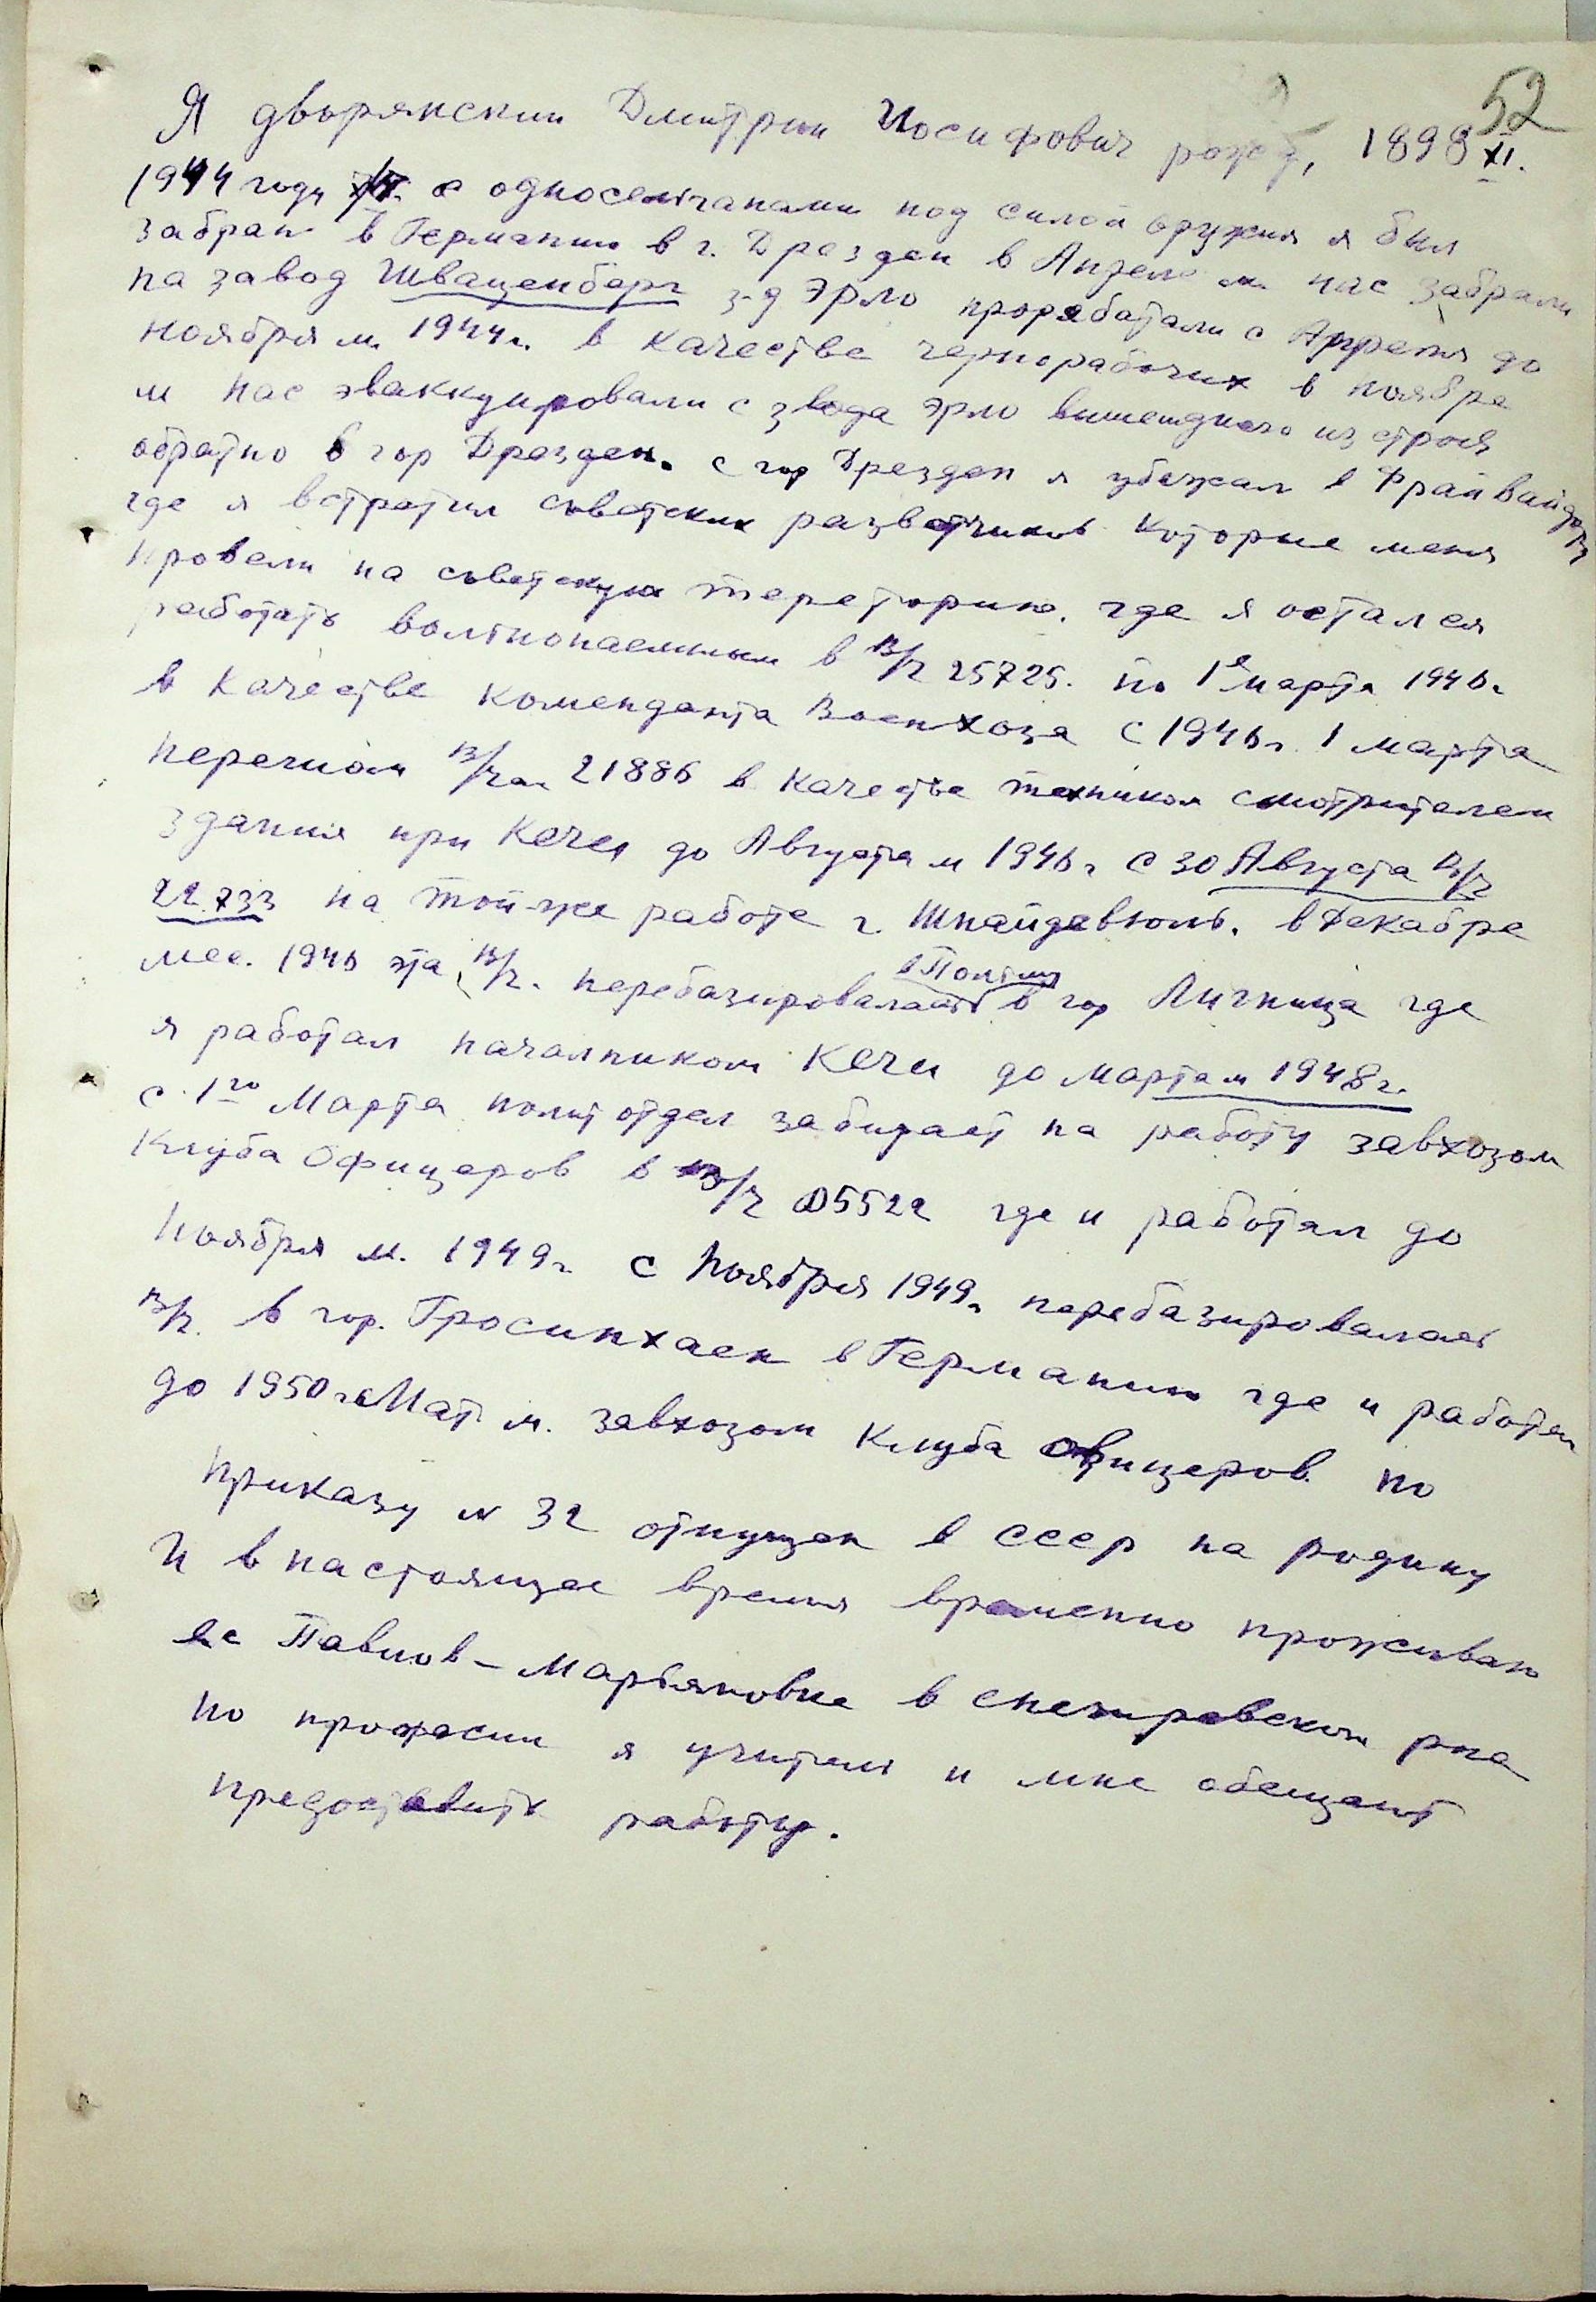 52
Я дворянскии Дмитрии Иосифович рожд, 1898 XI.
1944 году с односельчанами под силой оружия я был
забран в Германию в г. Дрезден в Апреле м. нас забрали
на завод Шваценберг з-д Эрло проработали с Апреля до
ноября м. 1944г. в качестве чернорабочих в ноябре
м нас эваккуировали с звода Эрло вышедшего из строя
обратно в гор Дрезден. с гор Дрезден я убежал в Фрайвайдорз
где я встретил советских разветчиков которые меня
провели на советскую тереторию. где я остался
работать волнонаемным в в/ч 25725. по 1е марта 1946г
в качестве коменданта Военхоза с 1946г. 1 марта
перешол в/ча 21886 в качестве техником смотрителем
здания при Кечи до Августа м 1946г с 30 Августа в/ч
22.733 на той-же работе г. Шнайдевюль. в декабре
мес. 1946 эта в/ч. перебазировалась в Польшу в гор Лигница где
я работал началником Кечи до марта м 1948г.
с 1го Марта политотдел забирает на работу завхозом
Клуба Офицеров в в/ч 05522 где и работал до
Ноября м. 1949г с Ноября 1949г перебазировалась
в/ч. в гор. Гросинхаен в Германию где и работал
до 1950г Мая м. завхозом Клуба офицеров по
приказу № 32 отпущен в СССР на родину
И в настоящее время временно проживаю
в с Павлов-Марьяновке в снегиревском р-не
по профессии я учитель и мне обещают
предоставить работу.